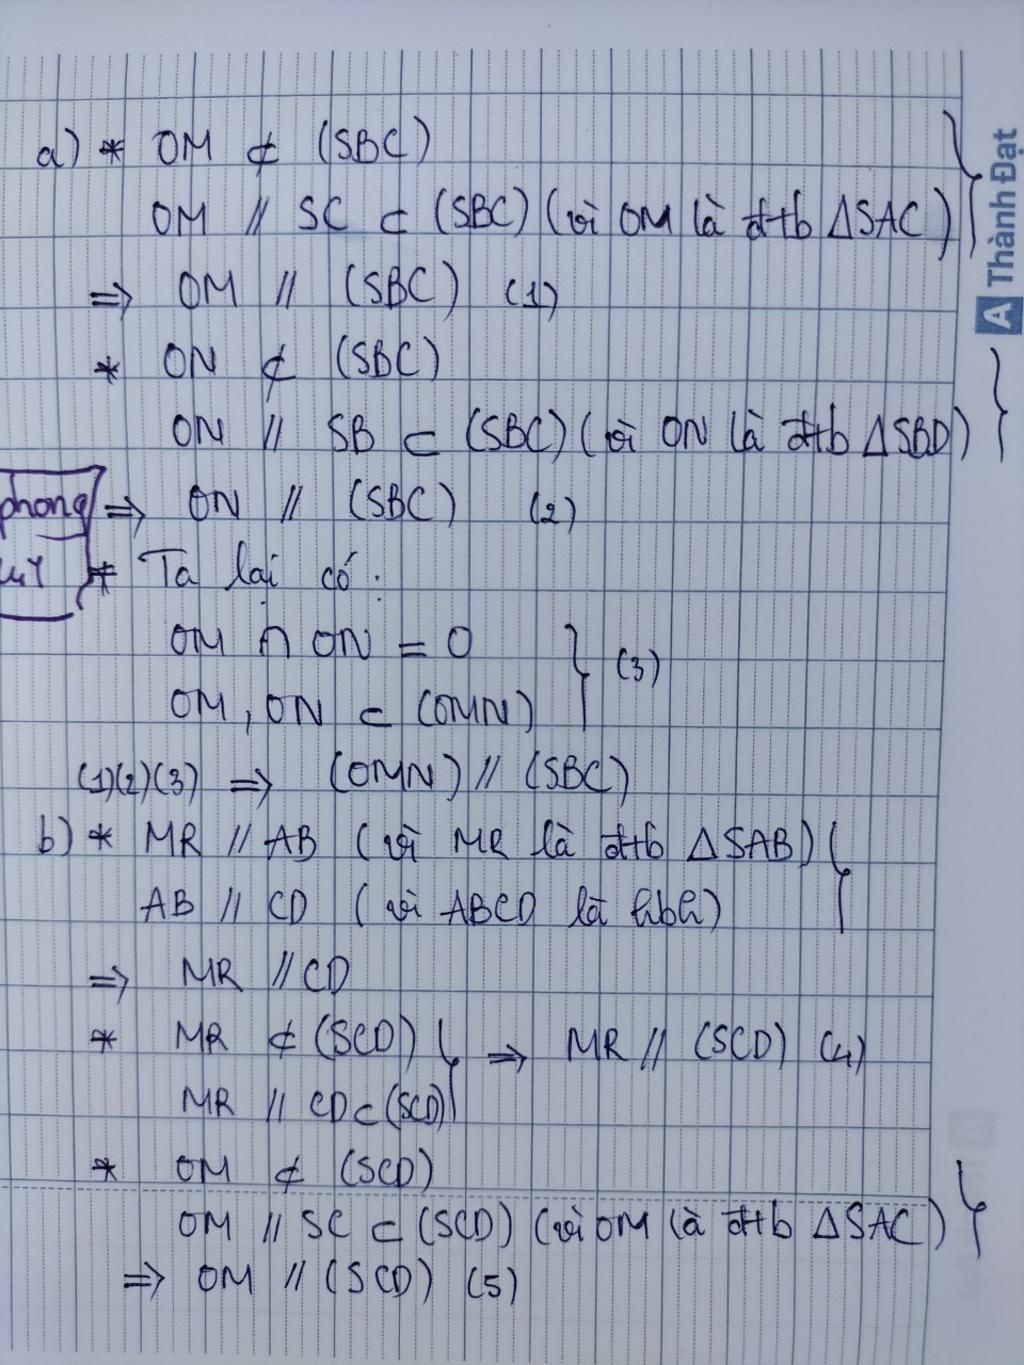 a) * OM ⊄ (SBC)
OM // SC ⊂ (SBC) (vì OM là đtb ΔSAC)
⇒ OM // (SBC) (1)
* ON ⊄ (SBC)
ON // SB ⊂ (SBC) (vì ON là đtb ΔSBD)
phong ⇒ ON // (SBC) (2)
* Ta lại có:
OM ∩ ON = O
OM, ON ⊂ (OMN) } (3)
(1)(2)(3) ⇒ (OMN) // (SBC)
b) * MR // AB (vì MR là đtb ΔSAB)
AB // CD (vì ABCD là hbh)
⇒ MR // CD
* MR ⊄ (SCD) } ⇒ MR // (SCD) (4)
MR // CD ⊂ (SCD)
* OM ⊄ (SCD)
OM // SC ⊂ (SCD) (vì OM là đtb ΔSAC)
⇒ OM // (SCD) (5)
A Thành Đạt